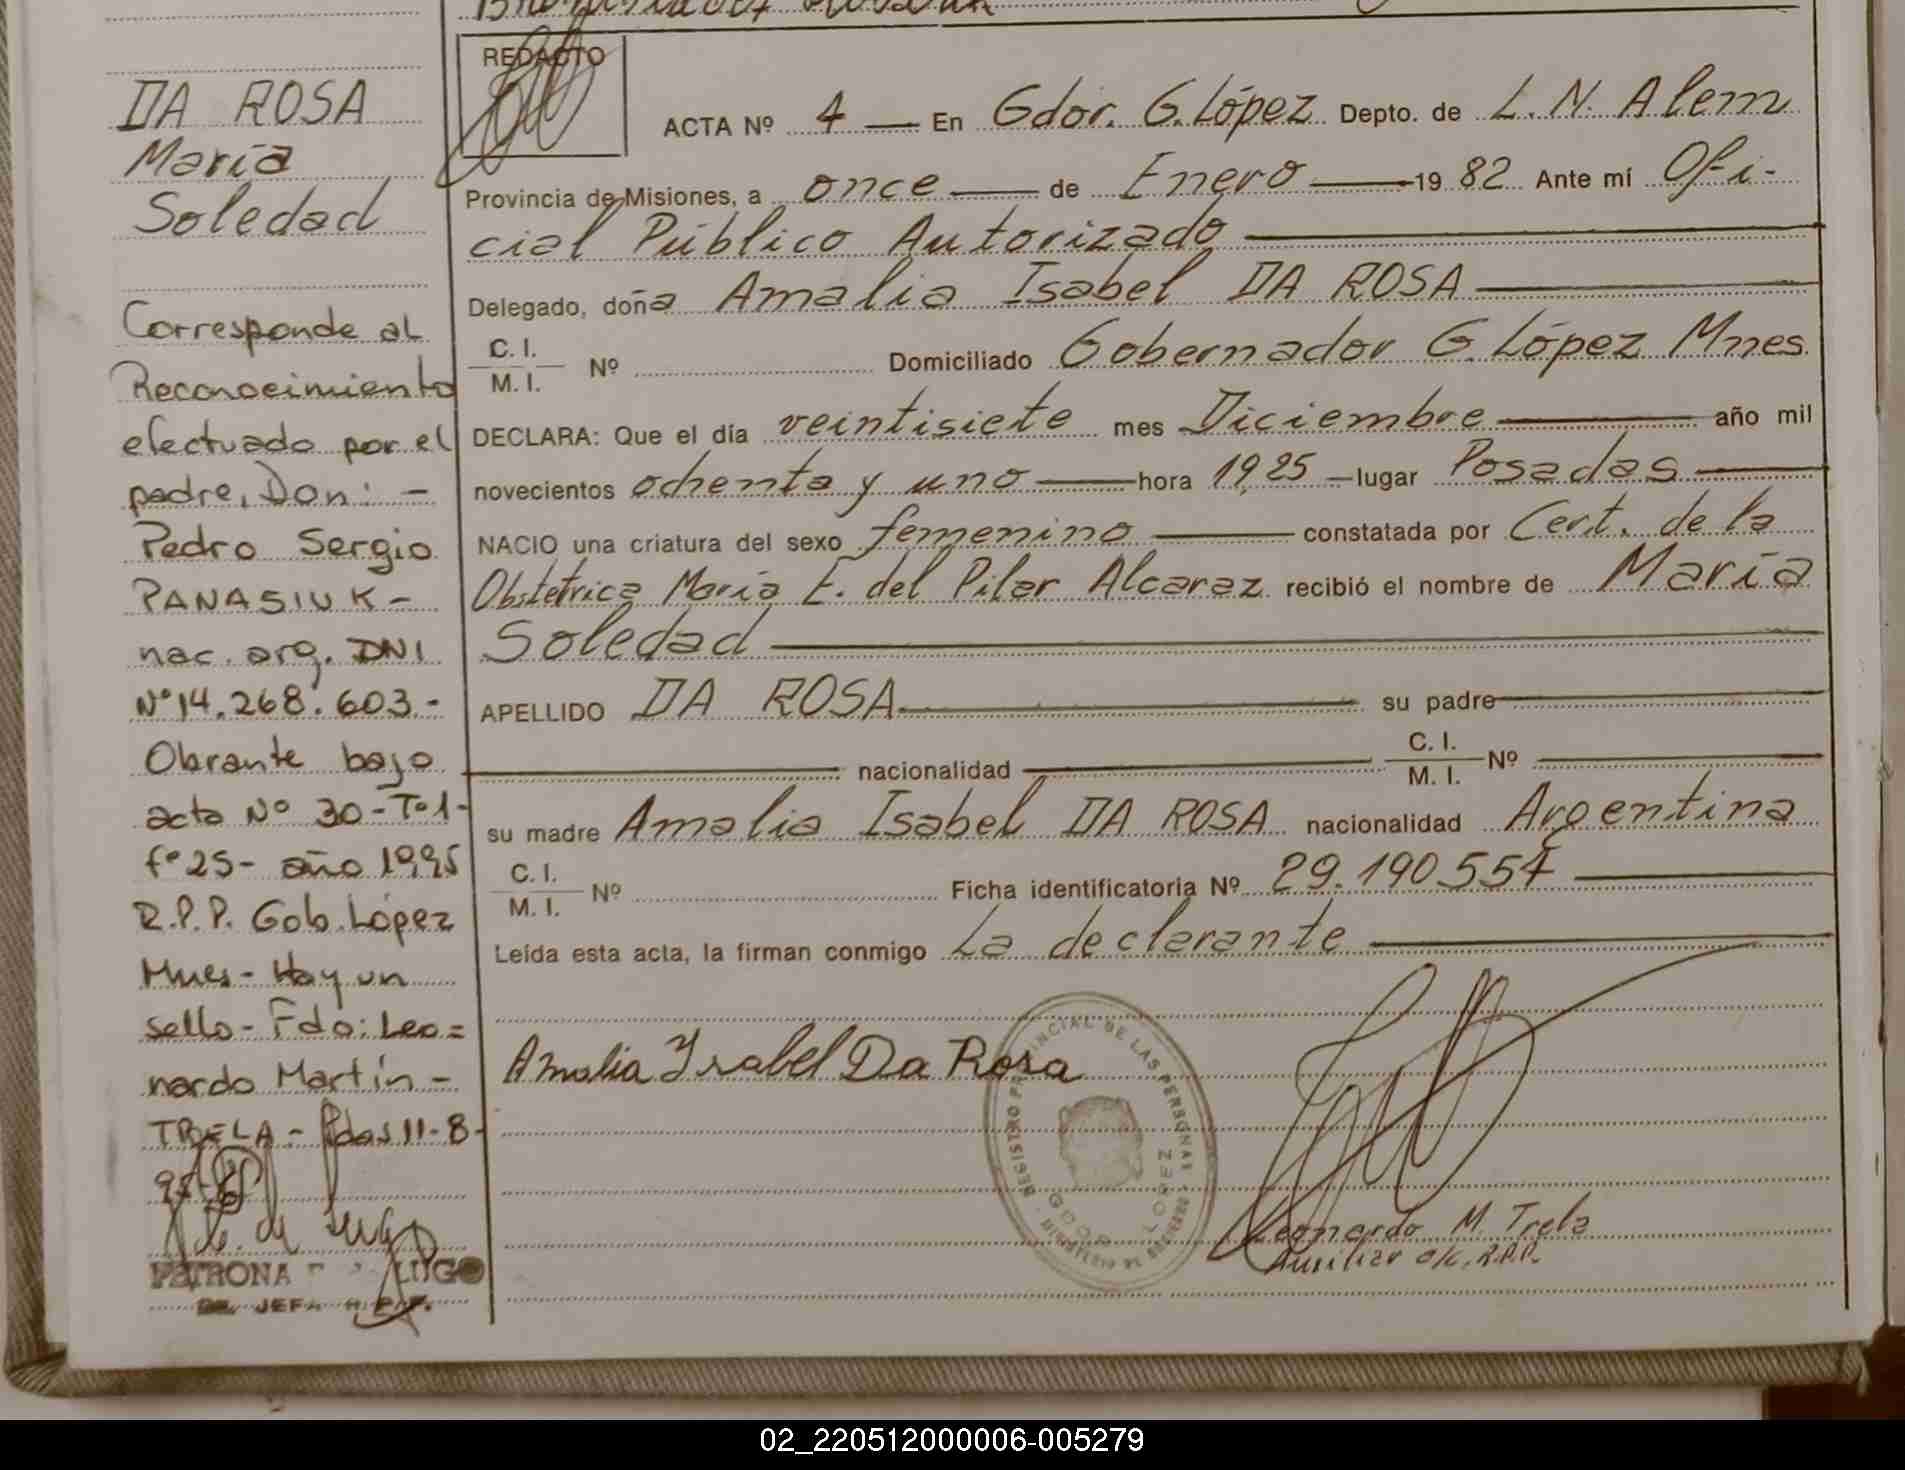 DA ROSA
María
Soledad
Corresponde al
Reconocimiento
efectuado por el
padre, Don: -
Pedro Sergio
PANASIUK -
nac. arg. DNI
Nº 14.268.603.-
Obrante bajo
acta Nº 30 - Tº 1 -
fº 25 - año 1995
R.P.P. Gob. López
Mnes - Hay un
sello - Fdo: Leo=
nardo Martín -
TRELA - Pdas 11-8-
95
PETRONA LUGO
JEFA R.P.P.
REDACTO
ACTA Nº 4 — En Gdor. G. López Depto. de L. N. Alem
Provincia de Misiones, a once — de Enero — 19 82 Ante mí Ofi-
cial Público Autorizado —
Delegado, doña Amalia Isabel DA ROSA —
C. I.
M. I. Nº Domiciliado Gobernador G. López Mnes
DECLARA: Que el día veintisiete mes Diciembre — año mil
novecientos ochenta y uno — hora 19,25 — lugar Posadas —
NACIO una criatura del sexo femenino — constatada por Cert. de la
Obstetrica María E. del Pilar Alcaraz recibió el nombre de María
Soledad —
APELLIDO DA ROSA — su padre —
— nacionalidad — C. I.
M. I. Nº —
su madre Amalia Isabel DA ROSA nacionalidad Argentina
C. I.
M. I. Nº Ficha identificatoria Nº 29.190.554 —
Leída esta acta, la firman conmigo La declarante —
Amalia Ysabel Da Rosa
REGISTRO PROVINCIAL DE LAS PERSONAS
GDOR LOPEZ
Leonardo M. Trela
Auxiliar a/c. R.P.P.
02_220512000006-005279